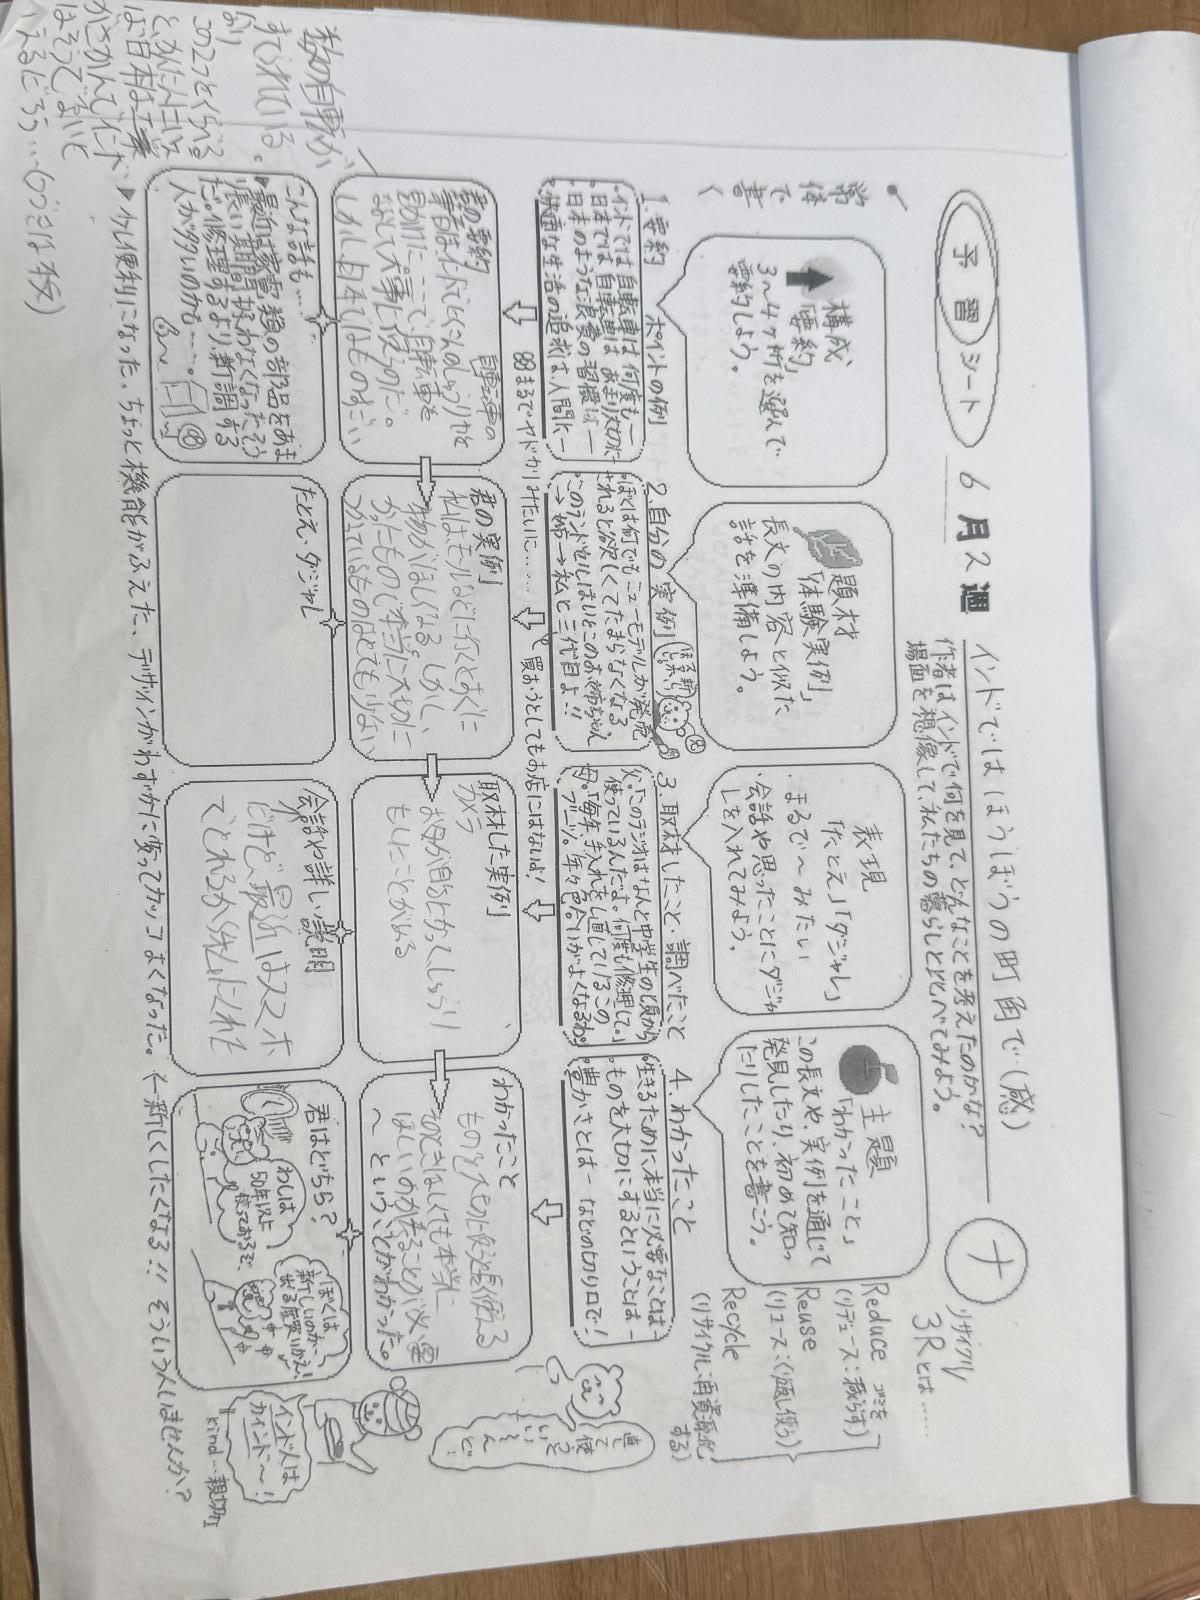 予習シート
6月2週
インドではほうぼうの町角で(感)
作者はインドで何を見て、どんなことを考えたのかな?
場面を想像して、私たちの暮らしと比べてみよう。
ナ
リサイクル
3Rとは……
Reduce
ゴミを
(リデュース:減らす)
Reuse
(リユース:くり返し使う)
Recycle
(リサイクル:再資源化する)
常体で書く
構成
「要約」
3~4ヶ所を選んで
要約しよう。
題材
「体験実例」
長文の内容と似た
話を準備しよう。
表現
「たとえ」「ダジャレ」
まるで~みたい
会話や思ったことにダジャ
レを入れてみよう。
主題
「わかったこと」
この長文や、実例を通じて
発見したり、初めて知っ
たりしたことを書こう。
1.要約 ポイントの例
・インドでは自転車は何度も―
・日本では自転車はあまり大切に―
・日本のような浪費の習慣は―
・快適な生活の追求は、人間に―
2.自分の実例
・ぼくは何でもニューモデルが発売
されると欲しくてたまらなくなる
・このランドセルはいとこのお姉ちゃん
→姉→私と三代目よ!!
3.取材したこと・調べたこと
父。「このラジオはなんと中学生の頃から
使っているんだよ。何度も修理して。」
母。「毎年、手入れをし直しているこの
ブーツ。年々色合いがよくなるわ。
4.わかったこと
・生きるために本当に必要なことは―
・ものを大切にするということは―
・豊かさとは― などの切り口で!
まるでヤドカリみたいに……
買おうとしてもお店にはないよ!
直して使うといいんだど!
君の要約
筆者はインドでたくさんの自転車の
しゅうりやを
なおして大事に使うのだ。
しかし、日本ではものすごい
数の自転車が
すてられている。
君の実例
私はモールなどに行くとすぐに
物がほしくなる。しかし、
かったもので本当に大切に
つかっているものはとても少ない
取材した実例
わかったこと
ものを大切に使う
そのときほしくても本当に
ほしいのか考えることが必要
~ということがわかった。
こんな話も…
▶最近は家電類の部品をあまり
長い期間扱わなくなったそう
だ。修理するより、新調する
人が多いのかな……。
たとえ・ダジャレ
会話や詳しい説明
だけど、最近はスマホ
でとれるから
君はどちら?
わしは
50年以上
使っておるぞ。
ぼくは
新しいのが
出る度買いかえ!
インド人は
カインド~!
kind…親切
▶少し便利になった、ちょっと機能がふえた、デザインがわずかに変ってカッコよくなった。←新しくしたくなる!! そういう人いませんか?
この2つをくらべる
ば、日本は工業
がさかんでインド
はそうでないと
いえるだろう…